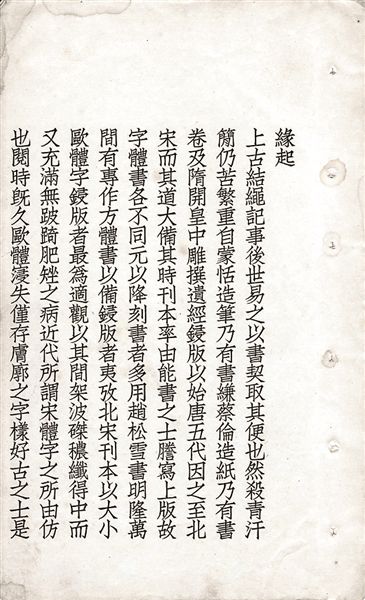 緣起
上古結繩記事後世易之以書契取其便也然殺青汗
簡仍苦繁重自蒙恬造筆乃有書縑蔡倫造紙乃有書
卷及隋開皇中雕撰遺經鋟版以始唐五代因之至北
宋而其道大備其時刊本率由能書之士謄寫上版故
字體書各不同元以降刻書者多用趙松雪書明隆萬
間有專作方體書以備鋟版者夷攷北宋刊本以大小
歐體字鋟版者最為適觀以其間架波磔穠纖得中而
又充滿無跛踦肥矬之病近代所謂宋體字之所由仿
也閱時旣久歐體寖失僅存膚廓之字樣好古之士是